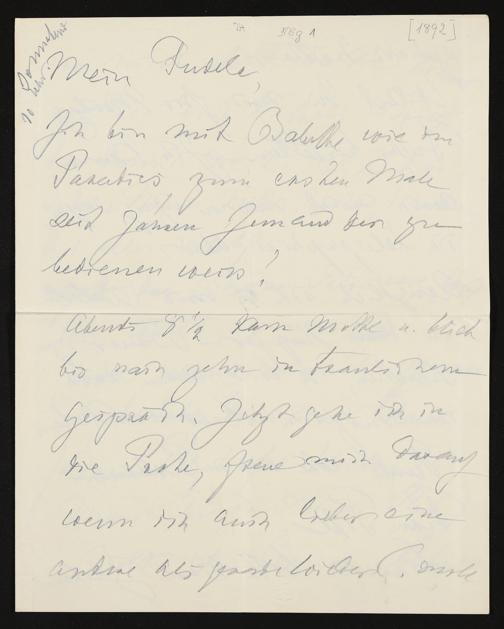 [1892]
Sonnabend
10
Mein
Ich bin mit Babette wie im
Paradies, zum ersten Male
seit Jahren Jemand der zu
bedienen weiss!
Abends 8 1/2 kam u. blieb
bis nach zehn in
Gespräch. Jetzt gehe ich in
die Probe, freue mich darauf
wenn ich auch lieber eine
andre als